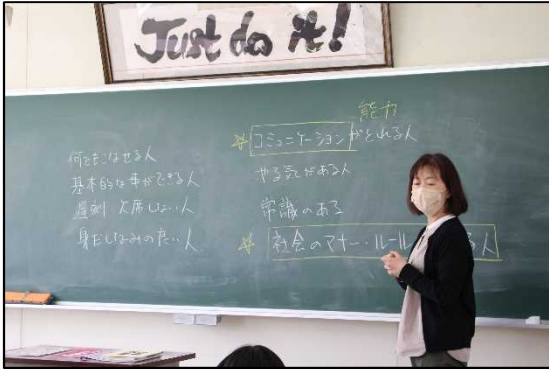 Just do it!
何でもこなせる人
基本的な事ができる人
遅刻 欠席しない人
身だしなみの 人
能力
コミュニケーションがとれる人
やる気がある人
常識のある
社会のマナー・ルール る人